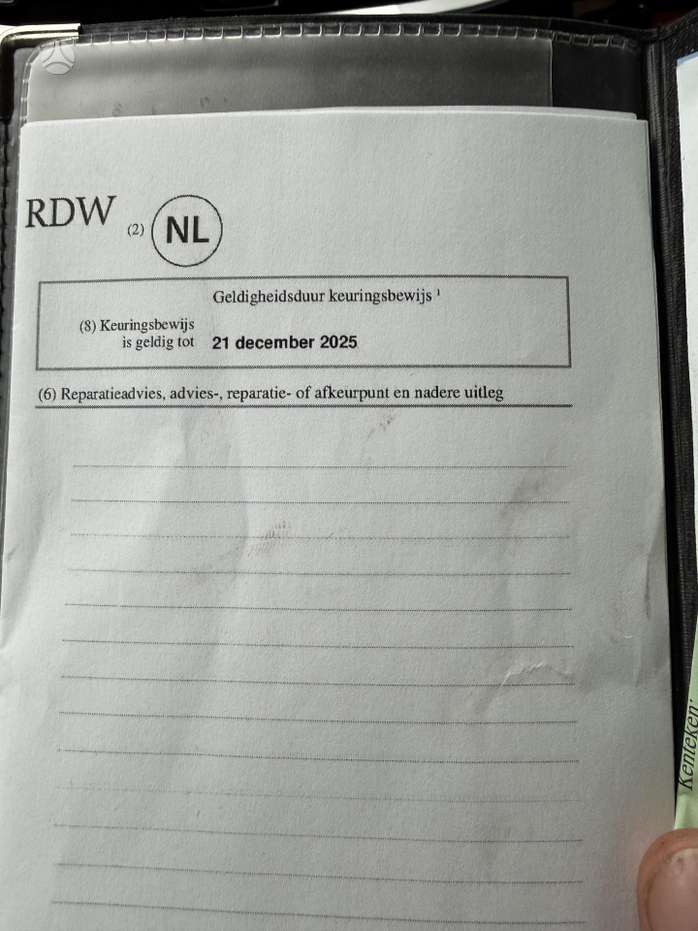 RDW (2) NL
Geldigheidsduur keuringsbewijs ¹
(8) Keuringsbewijs
is geldig tot 21 december 2025
(6) Reparatieadvies, advies-, reparatie- of afkeurpunt en nadere uitleg
Kenteken